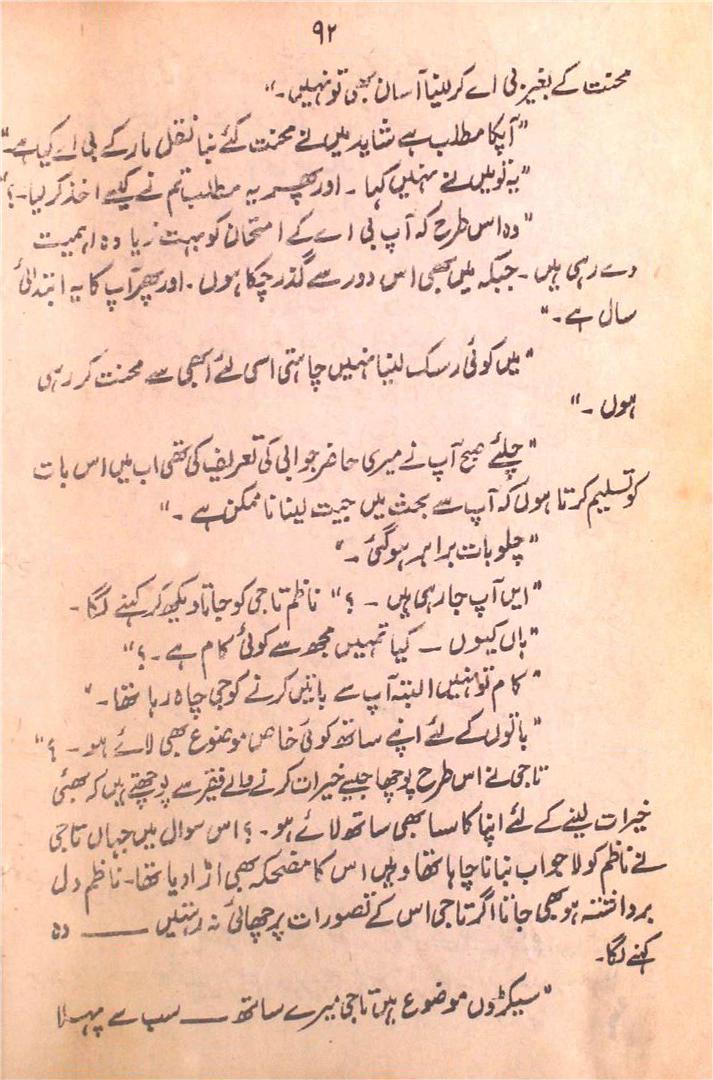 ۹۲
محنت کے بغیر بی اے کر لینا آسان بھی تو نہیں۔"
"آپکا مطلب ہے شاید میں نے محنت کئے بنا نقل مار کے بی اے کیا ہے۔"
"یہ تو میں نے نہیں کہا۔ اور پھر یہ مطلب تم نے کیسے اخذ کر لیا۔؟"
"وہ اس طرح کہ آپ بی اے کے امتحان کو بہت زیادہ اہمیت
دے رہی ہیں۔ جبکہ میں بھی اس دور سے گذر چکا ہوں۔ اور پھر آپ کا یہ ابتدائی
سال ہے۔"
"میں کوئی رسک لینا نہیں چاہتی اسی لئے ابھی سے محنت کر رہی
ہوں۔"
"چلئے صبح آپ نے میری حاضر جوابی کی تعریف کی تھی اب میں اس بات
کو تسلیم کرتا ہوں کہ آپ سے بحث میں جیت لینا ناممکن ہے۔"
"چلو بات برابر ہو گئی۔"
"ایں آپ جا رہی ہیں۔؟" ناظم تاجی کو جاتا دیکھ کر کہنے لگا۔
"ہاں کیوں — کیا تمہیں مجھ سے کوئی کام ہے۔؟"
"کام تو نہیں البتہ آپ سے باتیں کرنے کو جی چاہ رہا تھا۔"
"باتوں کے لئے اپنے ساتھ کوئی خاص موضوع بھی لائے ہو۔؟"
تاجی نے اس طرح پوچھا جیسے خیرات کرنے والے فقیر سے پوچھتے ہیں کہ بھئی
خیرات لینے کے لئے اپنا کاسا بھی ساتھ لائے ہو۔؟ اس سوال میں جہاں تاجی
نے ناظم کو لاجواب بنانا چاہا تھا وہیں اس کا مضحکہ بھی اڑا دیا تھا۔ ناظم دل
برداشتہ ہو بھی جاتا اگر تاجی اس کے تصورات پر چھائی نہ رہتیں —— وہ
کہنے لگا۔
"سیکڑوں موضوع ہیں تاجی میرے ساتھ —— سب سے پہلا